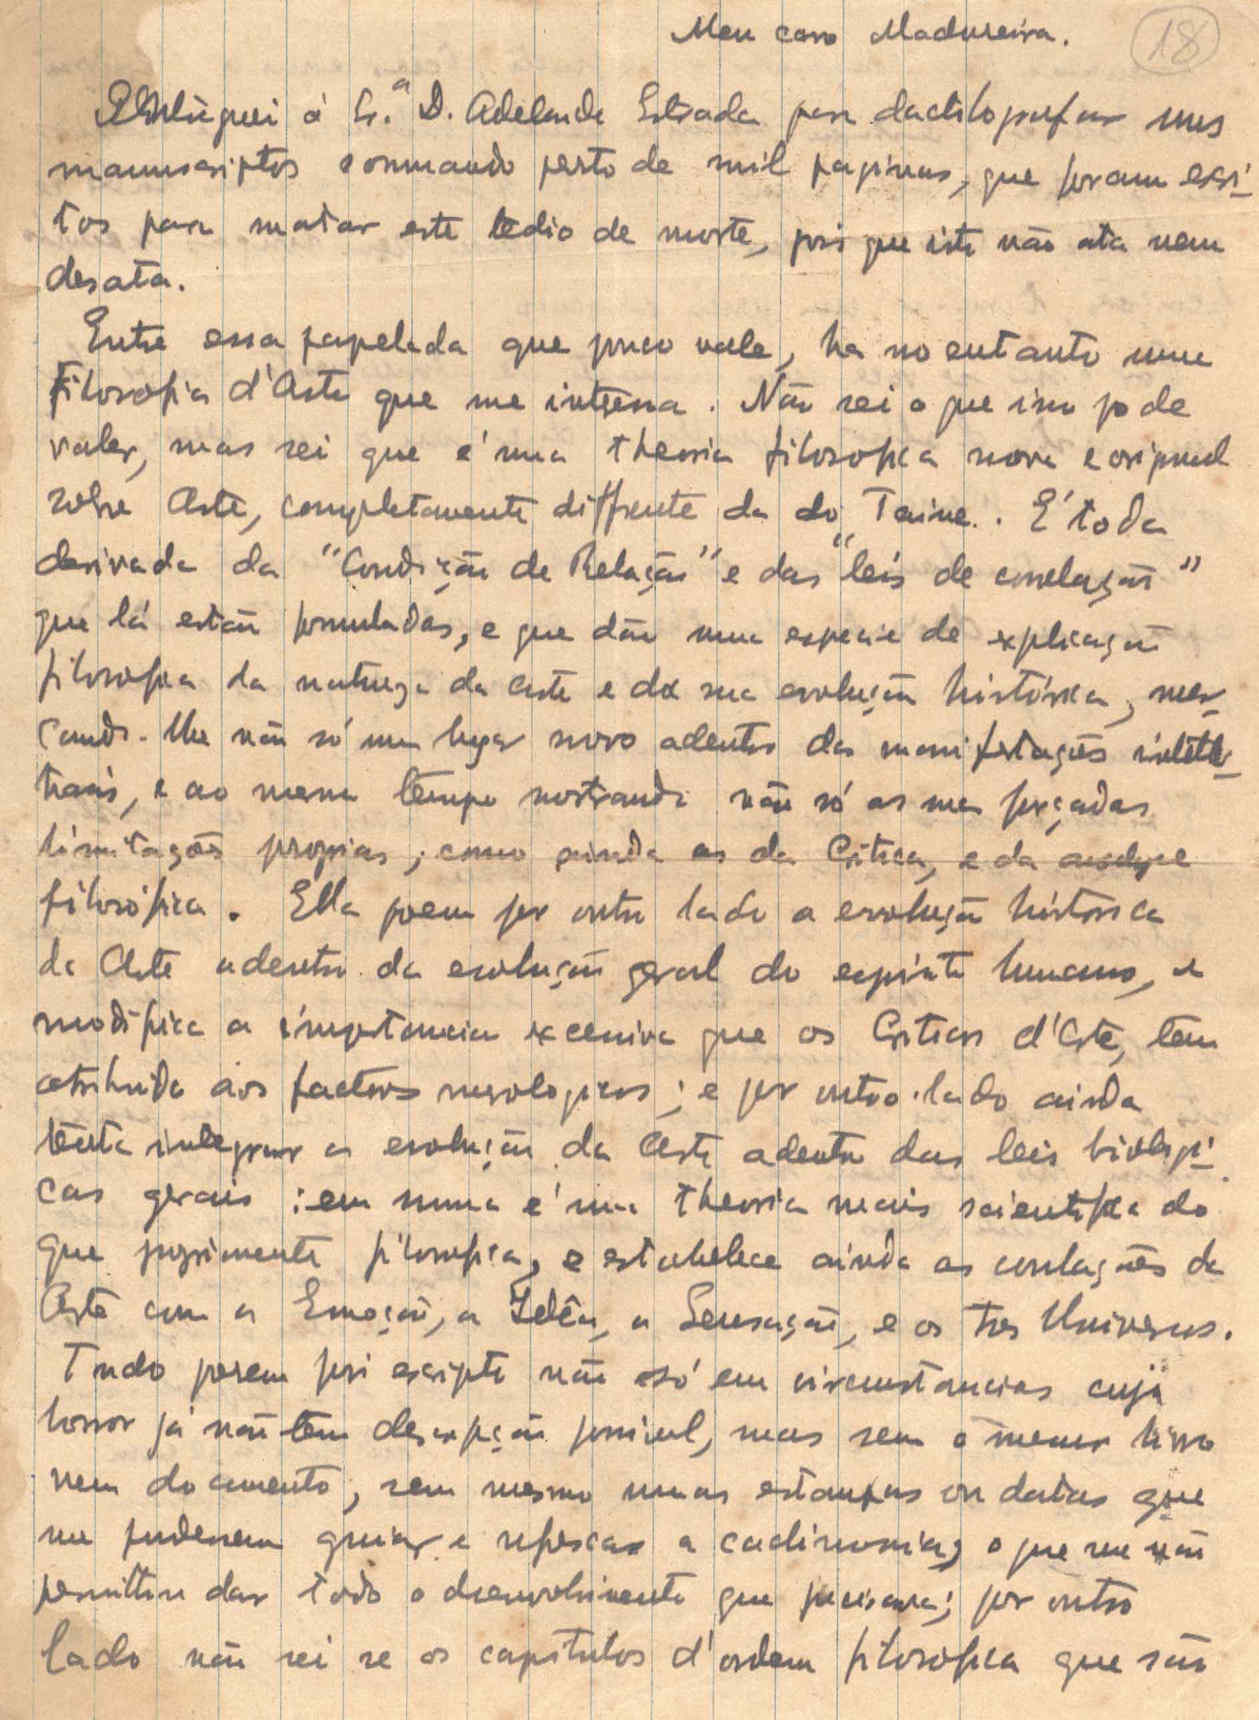 Meu caro Madureira. 18
Entreguei á Sr.ª D. Adelaide Estrada para dactilografar uns
manuscriptos sommando perto de mil paginas, que foram escri-
tos para matar este tedio de morte, pois que isto não ata nem
desata.
Entre essa papelada que pouco vale, ha no entanto uma
Filosofia d'Arte que me interessa. Não sei o que isso pode
valer, mas sei que é uma theoria filosofica nova e original
sobre Arte, completamente diffrente da do Taine. É toda
derivada da "Condição de Relação" e das "leis de correlação"
que lá estão formuladas, e que dão uma especie de explicação
filosofica da natureza da Arte e da sua evolução histórica, mar-
cando-lhe não só um lugar novo adentro das manifestações intelle-
ctuais, e ao mesmo tempo mostrando não só as suas forçadas
limitações proprias, como ainda as da Critica, e da analyse
filosófica. Ella poem por outro lado a evolução histórica
da Arte adentro da evolução geral do espirito humano, e
modifica a importancia excessiva que os Criticos d'Arte, tem
atribuido aos factores mesologicos; e por outro lado ainda
tenta integrar a evolução da Arte adentro das leis biologi-
cas gerais: em suma é uma theoria mais scientifica do
que propriamente filosofica, e estabelece ainda as correlações da
Arte com a Emoção, a Idêa, a Sensação, e os tres Universos.
Tudo porem foi escripto não só em circumstancias cujo
horror já não tem descripção possivel, mas sem o menor livro
nem documento, sem mesmo umas estampas ou datas que
me pudessem guiar e refrescar a cachimonia, o que me não
permittiu dar todo o desenvolvimento que precisava; por outro
lado não sei se os capitulos d'ordem filosofica que são